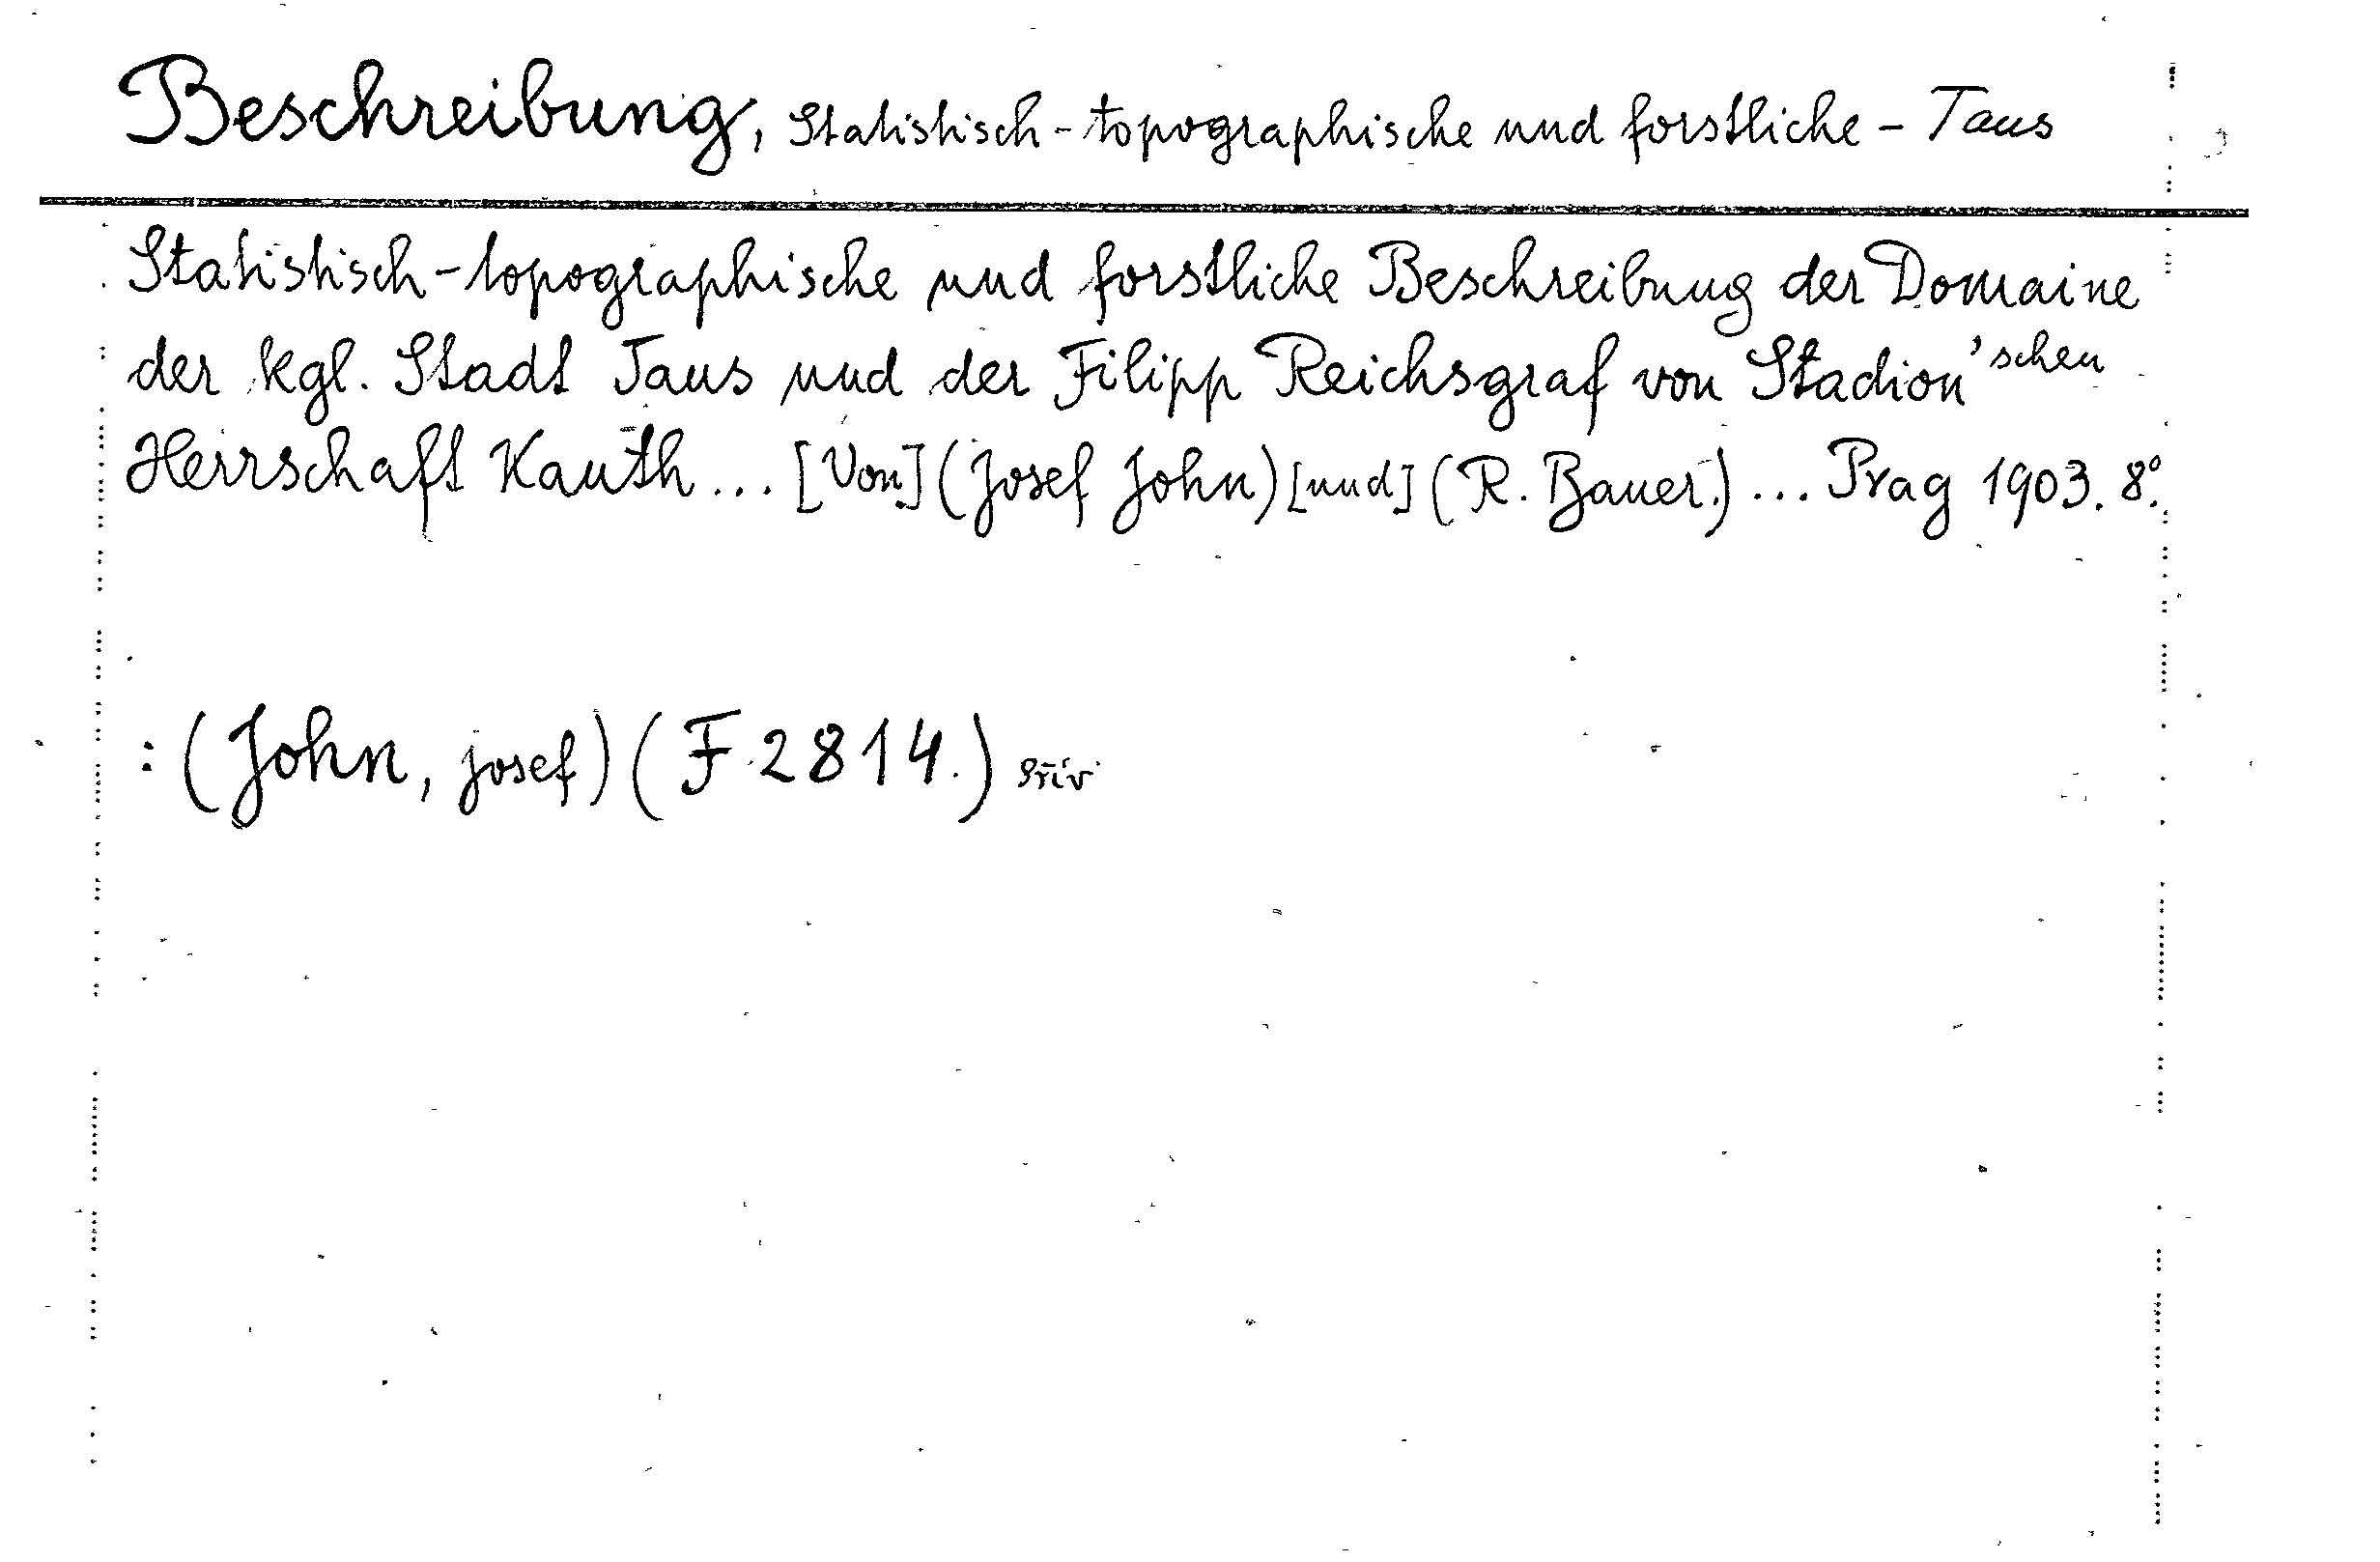 Beschreibung, Statistisch-topographische und forstliche - Taus
Statistisch-topographische und forstliche Beschreibung der Domaine
der kgl. Stadt Taus und der Filipp Reichsgraf von Stadion'schen
Herrschaft Kauth... [Von] (Josef John) [und] (R. Bauer.) ... Prag 1903. 8°.
: (John, Josef) (F 2814.)